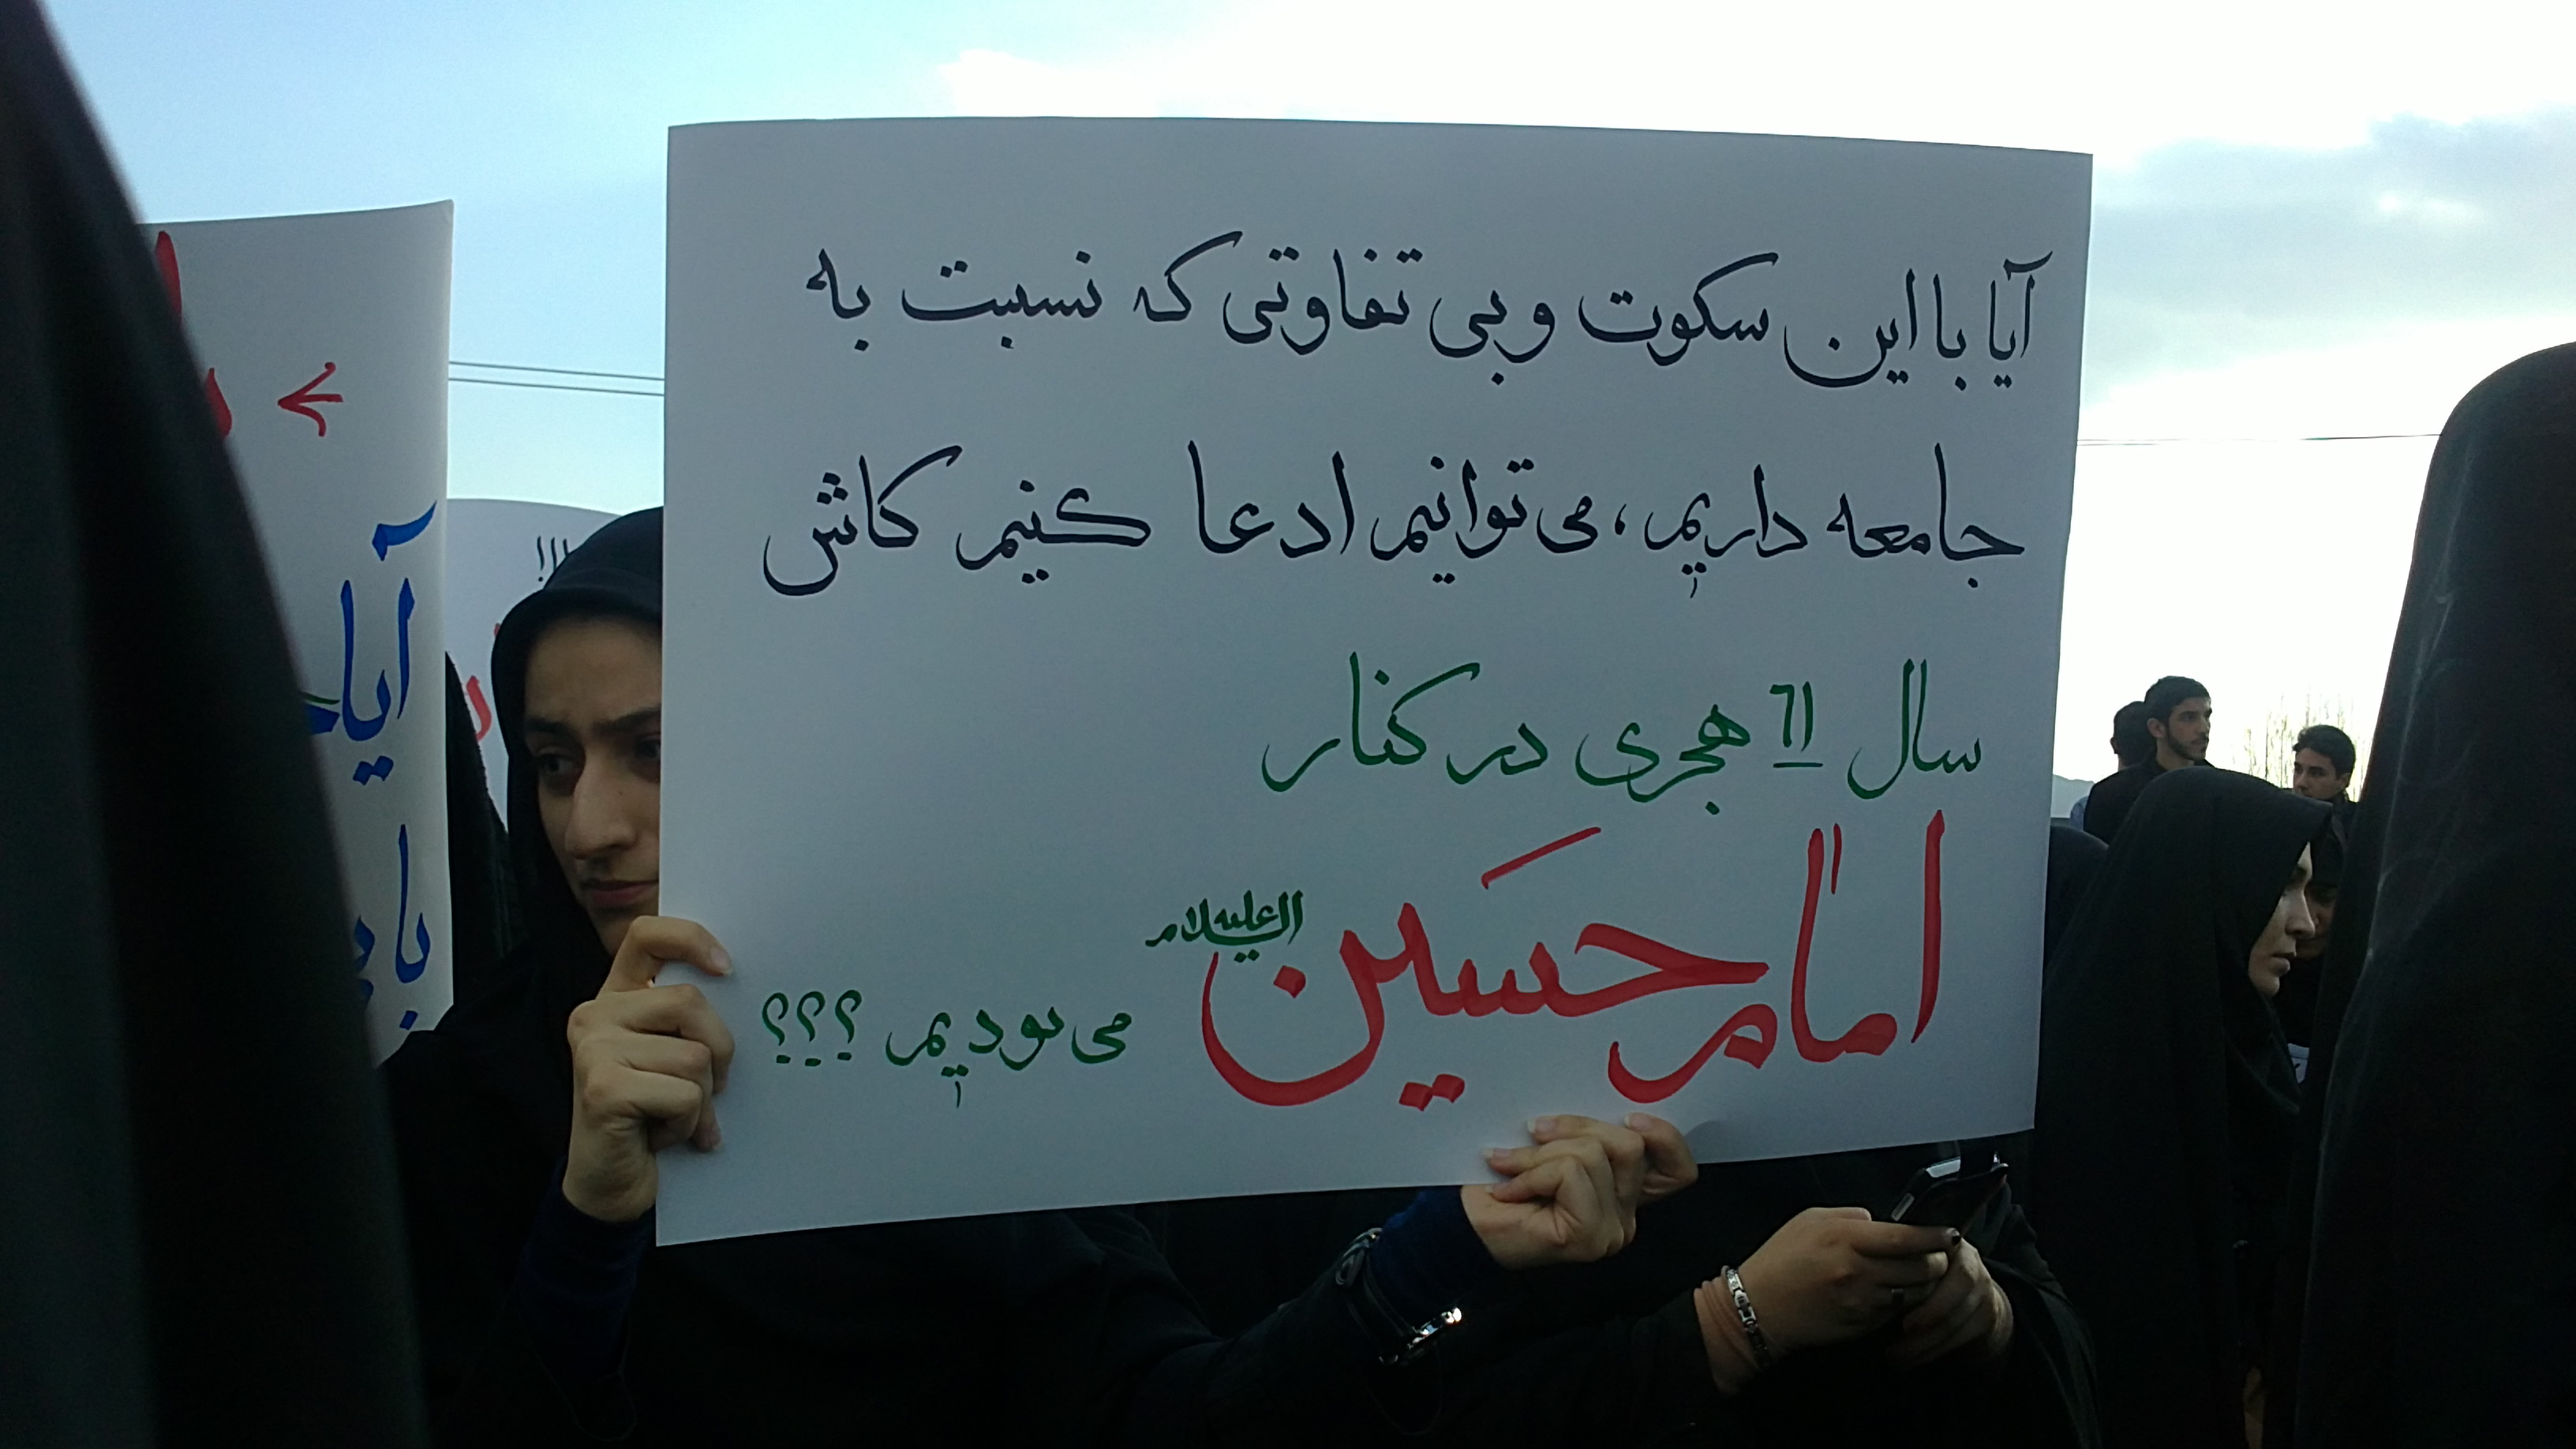 آیا با این سکوت و بی تفاوتی که نسبت به
جامعه داریم، می توانیم ادعا کنیم کاش
سال 61 هجری در کنار
امام حسین علیه السلام
می بودیم ؟؟؟
آیا
با
!!!